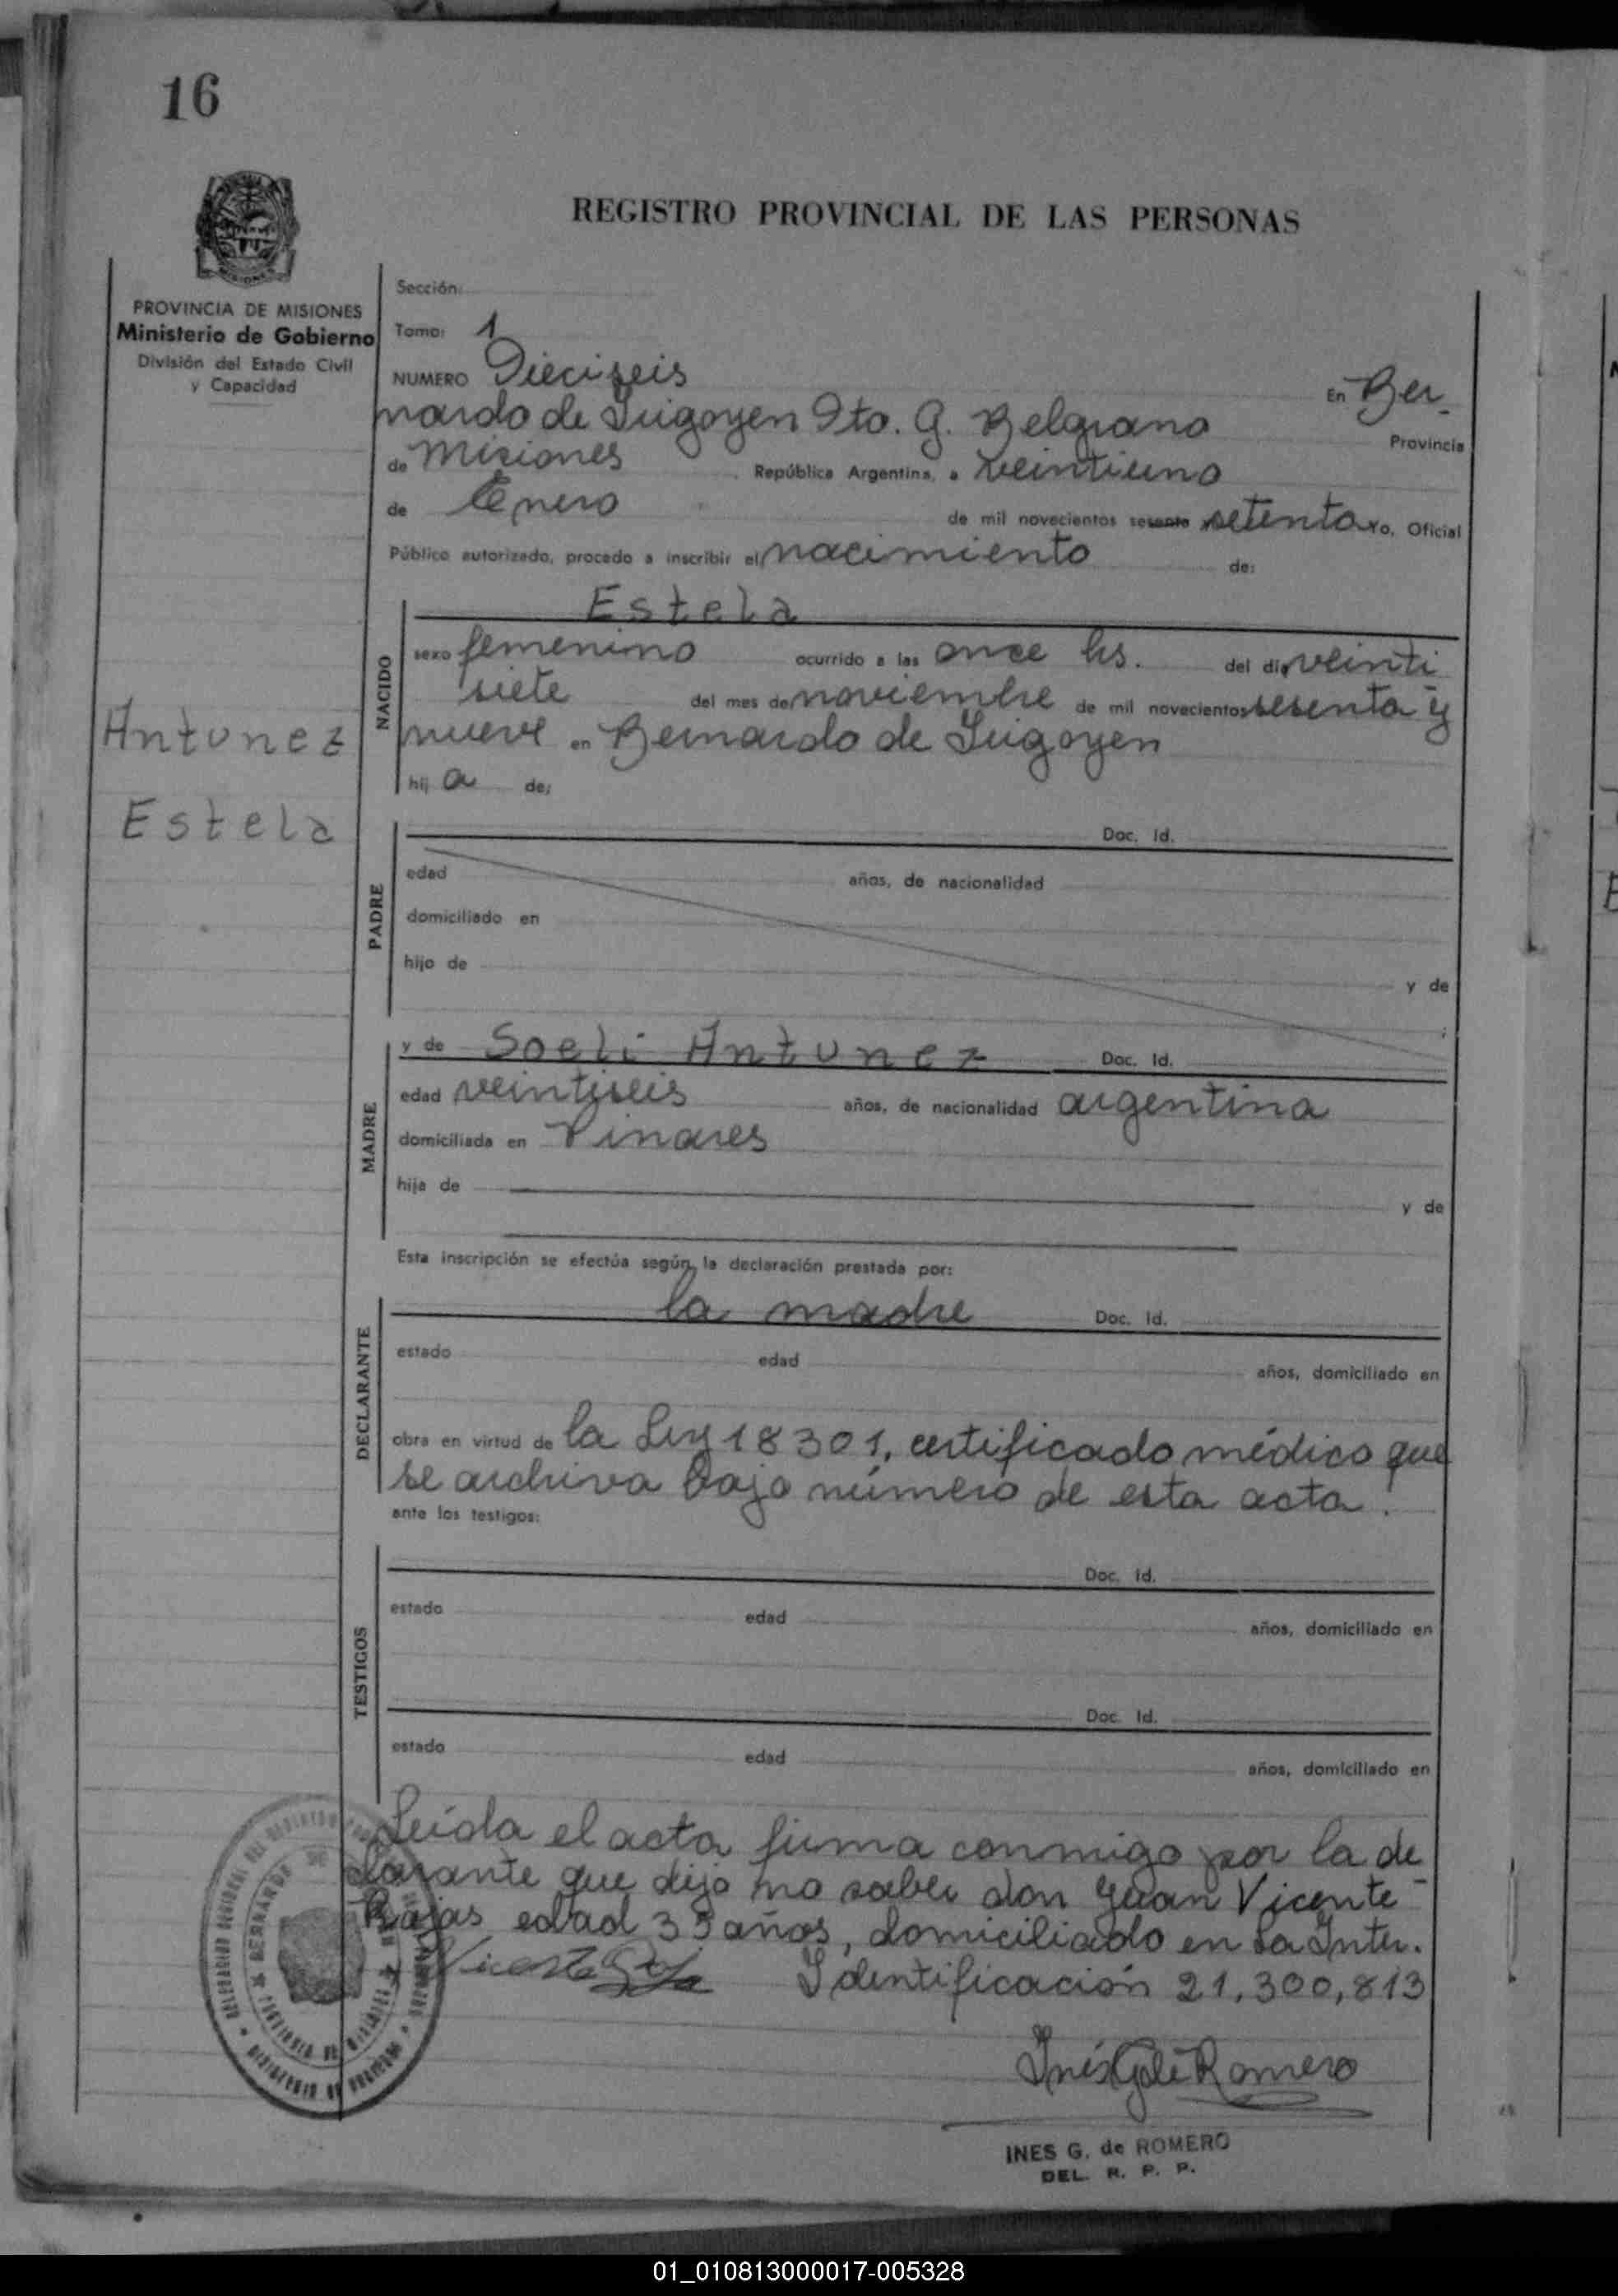 16
REGISTRO PROVINCIAL DE LAS PERSONAS
PROVINCIA DE MISIONES
Ministerio de Gobierno
División del Estado Civil
y Capacidad
Sección:
Tomo: 1
NUMERO Dieciseis En Ber-
nardo de Irigoyen Dto. G. Belgrano Provincia
de Misiones República Argentina, a veintiuno
de Enero de mil novecientos sesenta setenta Yo, Oficial
Público autorizado, procedo a inscribir el nacimiento de:
NACIDO
Estela
sexo femenino ocurrido a las once hs. del día veinti
siete del mes de noviembre de mil novecientos sesenta y
nueve en Bernardo de Irigoyen
hij a de:
Antunez
Estela
PADRE
Doc. Id.
edad años, de nacionalidad
domiciliado en
hijo de y de
;
MADRE
y de Soeli Antunez Doc. Id.
edad veintiseis años, de nacionalidad argentina
domiciliada en Pinares
hija de y de
Esta inscripción se efectúa según la declaración prestada por:
DECLARANTE
la madre Doc. Id.
estado edad años, domiciliado en
obra en virtud de la Ley 18301, certificado médico que
se archiva bajo número de esta acta.
ante los testigos:
TESTIGOS
Doc. Id.
estado edad años, domiciliado en
Doc. Id.
estado edad años, domiciliado en
Leída el acta firma conmigo por la de
clarante que dijo no saber don Juan Vicente
Rojas edad 35 años, domiciliado en la Inter.
Vicente Identificación 21,300,813
Inés G de Romero
INES G. de ROMERO
DEL. R. P. P.
01_010813000017-005328